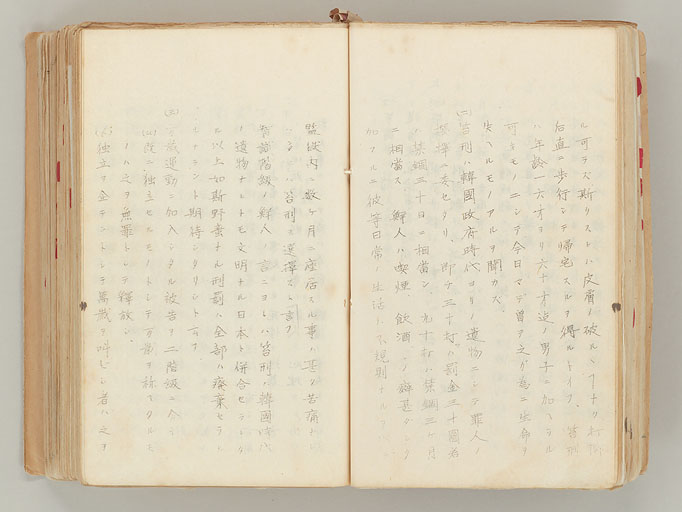 ル可ラズ斯クスレハ皮膚ノ破ルヽコトナク
后直ニ歩行シテ帰宅スルヲ得ルトイフ、笞刑
ハ年齢一六才ヨリ六十才迄ノ男子ニ加ヘラル
可キモノニシテ今日マデ曽テ之ガ為ニ生命ヲ
失ヘルモノアルヲ聞カズ、
(二)笞刑ハ韓國政府時代ヨリノ遺物ニシテ罪人ノ
選擇ニ委セタリ、即チ三十打ハ罰金三十圓若
ハ禁錮三十日ニ相當シ、九十打ハ禁錮三ケ月
ニ相當ス 鮮人ハ喫煙 飲酒ノ癖甚ダシク
加フルニ彼等日常ノ生活ノ不規則ナル
監獄内ニ数ケ月ニ座居スル事ハ甚ダ苦痛
ハ笞刑ヲ選擇スト言フ
階級ノ鮮人ノ言ニヨレハ笞刑ハ韓國時代
ノ遺物ナレトモ文明ナル日本ト併合セラレ
ル以上如斯野蛮ナル刑罰ハ全部ハ廃棄セラレ
期待シタリシト云フ
(三)万歳運動ニ加入シタル被告ヲ二階級ニ分ツ
(い)既ニ独立セルモノトシテ万歳ヲ称ヘタルモ
ノハ之ヲ無罪トシテ釋放シ
(ろ)独立ヲ企テントシテ萬歳ヲ叫ビシ者ハ之ヲ